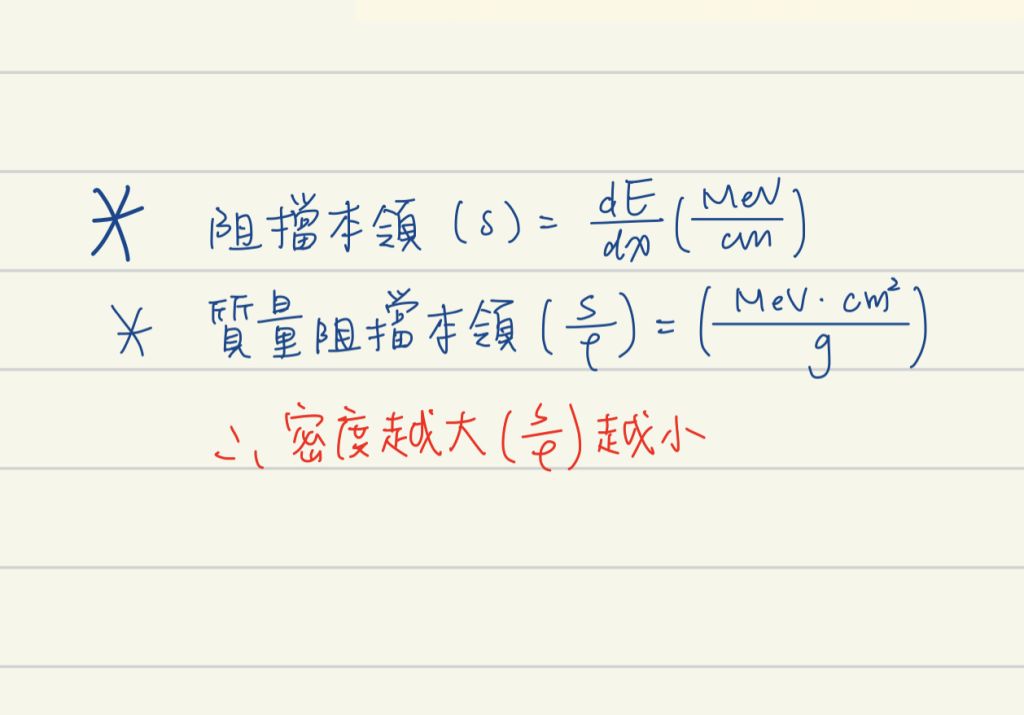 * 阻擋本領 (s) = dE/dx (MeV/cm)
* 質量阻擋本領 (s/ρ) = (MeV·cm²/g)
∴ 密度越大 (s/ρ) 越小